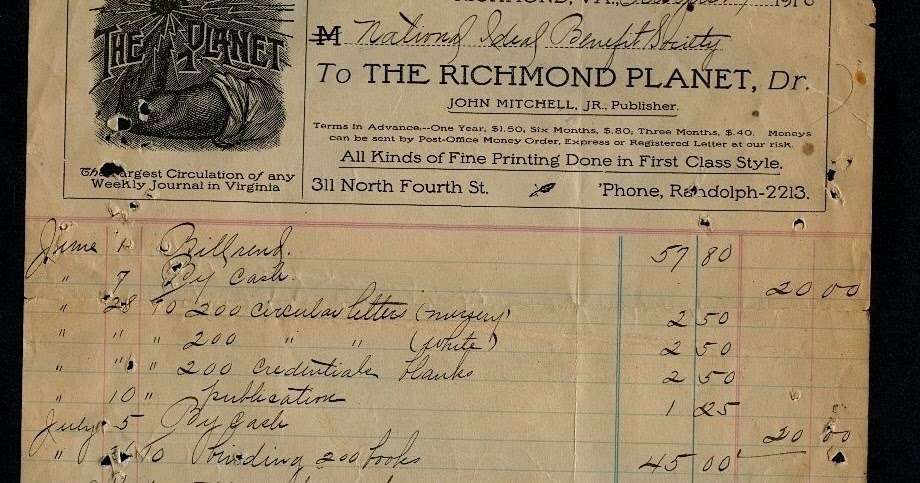 RICHMOND, VA., 191
THE PLANET
M National Ideal Benefit Society
To THE RICHMOND PLANET, Dr.
JOHN MITCHELL, JR., Publisher.
Terms in Advance.--One Year, $1.50, Six Months, $.80; Three Months, $.40. Moneys
can be sent by Post-Office Money Order, Express or Registered Letter at our risk.
All Kinds of Fine Printing Done in First Class Style.
The Largest Circulation of any
Weekly Journal in Virginia
311 North Fourth St. 'Phone, Randolph-2213.
June 1 Bill rend. 57 80
" 7 By Cash 20 00
" 28 To 200 circular letters (nursery) 2 50
" " " 200 " " (white) 2 50
" " " 200 credentials blanks 2 50
" 10 " publication 1 25
July 5 By Cash 20 00
" To binding 200 books 45 00